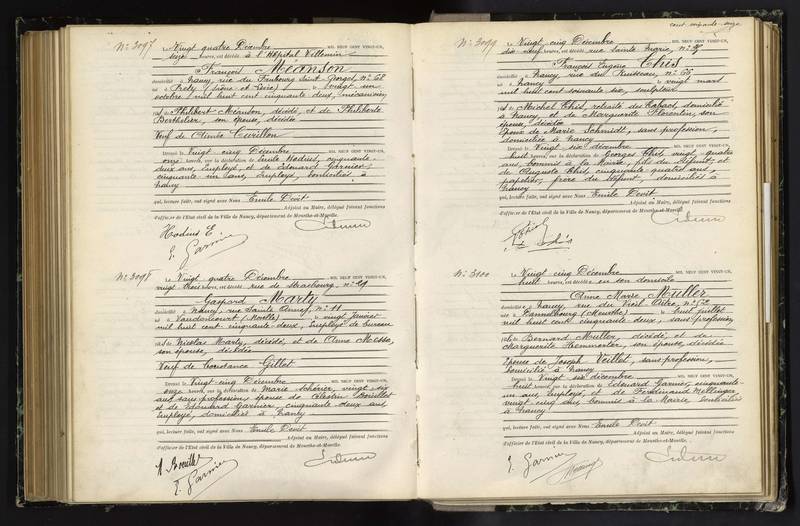 N° 3097
Le Vingt quatre Décembre MIL NEUF CENT VINGT-UN,
heures, est décédé à l'Hôpital Villemin
François Méanson
domicilié à Nancy, rue du Faubourg Saint-Georges, N° 68
né à (Saône et Loire) le vingt un
octobre mil huit cent cinquante deux, mécanicien
fils de Philibert Méanson, décédé, et de Philiberte
Berthelier, son épouse, décédée
Veuf de Curillon
Devant le Vingt cinq Décembre
onze heures, sur la déclaration de Emile Hodins, cinquante
deux ans, Employé et de Edouard Garnier
cinquante un ans, Employé, domiciliés à
Nancy
qui, lecture faite, ont signé avec Nous Emile Devit
Adjoint au Maire, délégué faisant fonctions
d'officier de l'Etat civil de la Ville de Nancy, département de Meurthe-et-Moselle.
Hodins E
E. Garnier
N° 3098
Le Vingt quatre Décembre MIL NEUF CENT VINGT-UN,
vingt trois heures rue de Strasbourg, N° 29
Gaspard Marly
domicilié à Nancy, rue Sainte N° 11
né à Vandoncourt (Moselle) le vingt Janvier
mil huit cent cinquante-deux, Employé de bureau
fils de Nicolas Marly, décédé, et de Anne
son épouse, décédée
Veuf de Constance Gillet
Devant le Vingt cinq Décembre
onze heures, sur la déclaration de Marie Schérier, vingt
ans sans profession, épouse de Célestin Bouillet
et de Edouard Garnier, cinquante deux ans
Employé, domiciliés à Nancy
qui, lecture faite, ont signé avec Nous Emile Devit
Adjoint au Maire, délégué faisant fonctions
d'officier de l'Etat civil de la Ville de Nancy, département de Meurthe-et-Moselle.
E. Garnier
cent
N° 3099
Le Vingt cinq Décembre MIL NEUF CENT VINGT-UN,
heures, est décédé rue Sainte Marie, N°
François Eugène Chis
domicilié à Nancy, rue du Ruisseau, N° 66
né à Nancy le vingt mars
mil huit cent soixante six, sculpteur
fils de Michel Chis, retraité des tabacs, domicilié
à Nancy et de Marguerite Florentin, son
épouse, décédée
Epoux de Marie Schmidt, sans profession,
domiciliée à Nancy
Devant le Vingt six décembre
huit heures, sur la déclaration de Georges Chis, vingt quatre
ans, commis à la Mairie, fils du défunt, et
de Auguste Chis, cinquante quatre ans,
papetier, frère du défunt, domiciliés à
Nancy
qui, lecture faite, ont signé avec Nous Emile Devit
Adjoint au Maire, délégué faisant fonctions
d'officier de l'Etat civil de la Ville de Nancy, département de Meurthe-et-Moselle.
N° 3100
Le Vingt cinq Décembre MIL NEUF CENT VINGT-UN,
huit heures, en son domicile
Anne Marie Muller
domiciliée à Nancy, rue du Vieil Aître, N° 52
née à (Moselle) le huit juillet
mil huit cent cinquante deux, sans profession
fille de Bernard Muller, décédé et de
Marguerite son épouse, décédée
Epouse de Joseph Veillet, sans profession,
domicilié à Nancy
Devant le Vingt six décembre
huit heures, sur la déclaration de Edouard Garnier, cinquante
un ans, Employé, et de Ferdinand Mellinger,
vingt cinq ans, commis à la Mairie, domiciliés
à Nancy
qui, lecture faite, ont signé avec Nous Emile Devit
Adjoint au Maire, délégué faisant fonctions
d'officier de l'Etat civil de la Ville de Nancy, département de Meurthe-et-Moselle.
E. Garnier